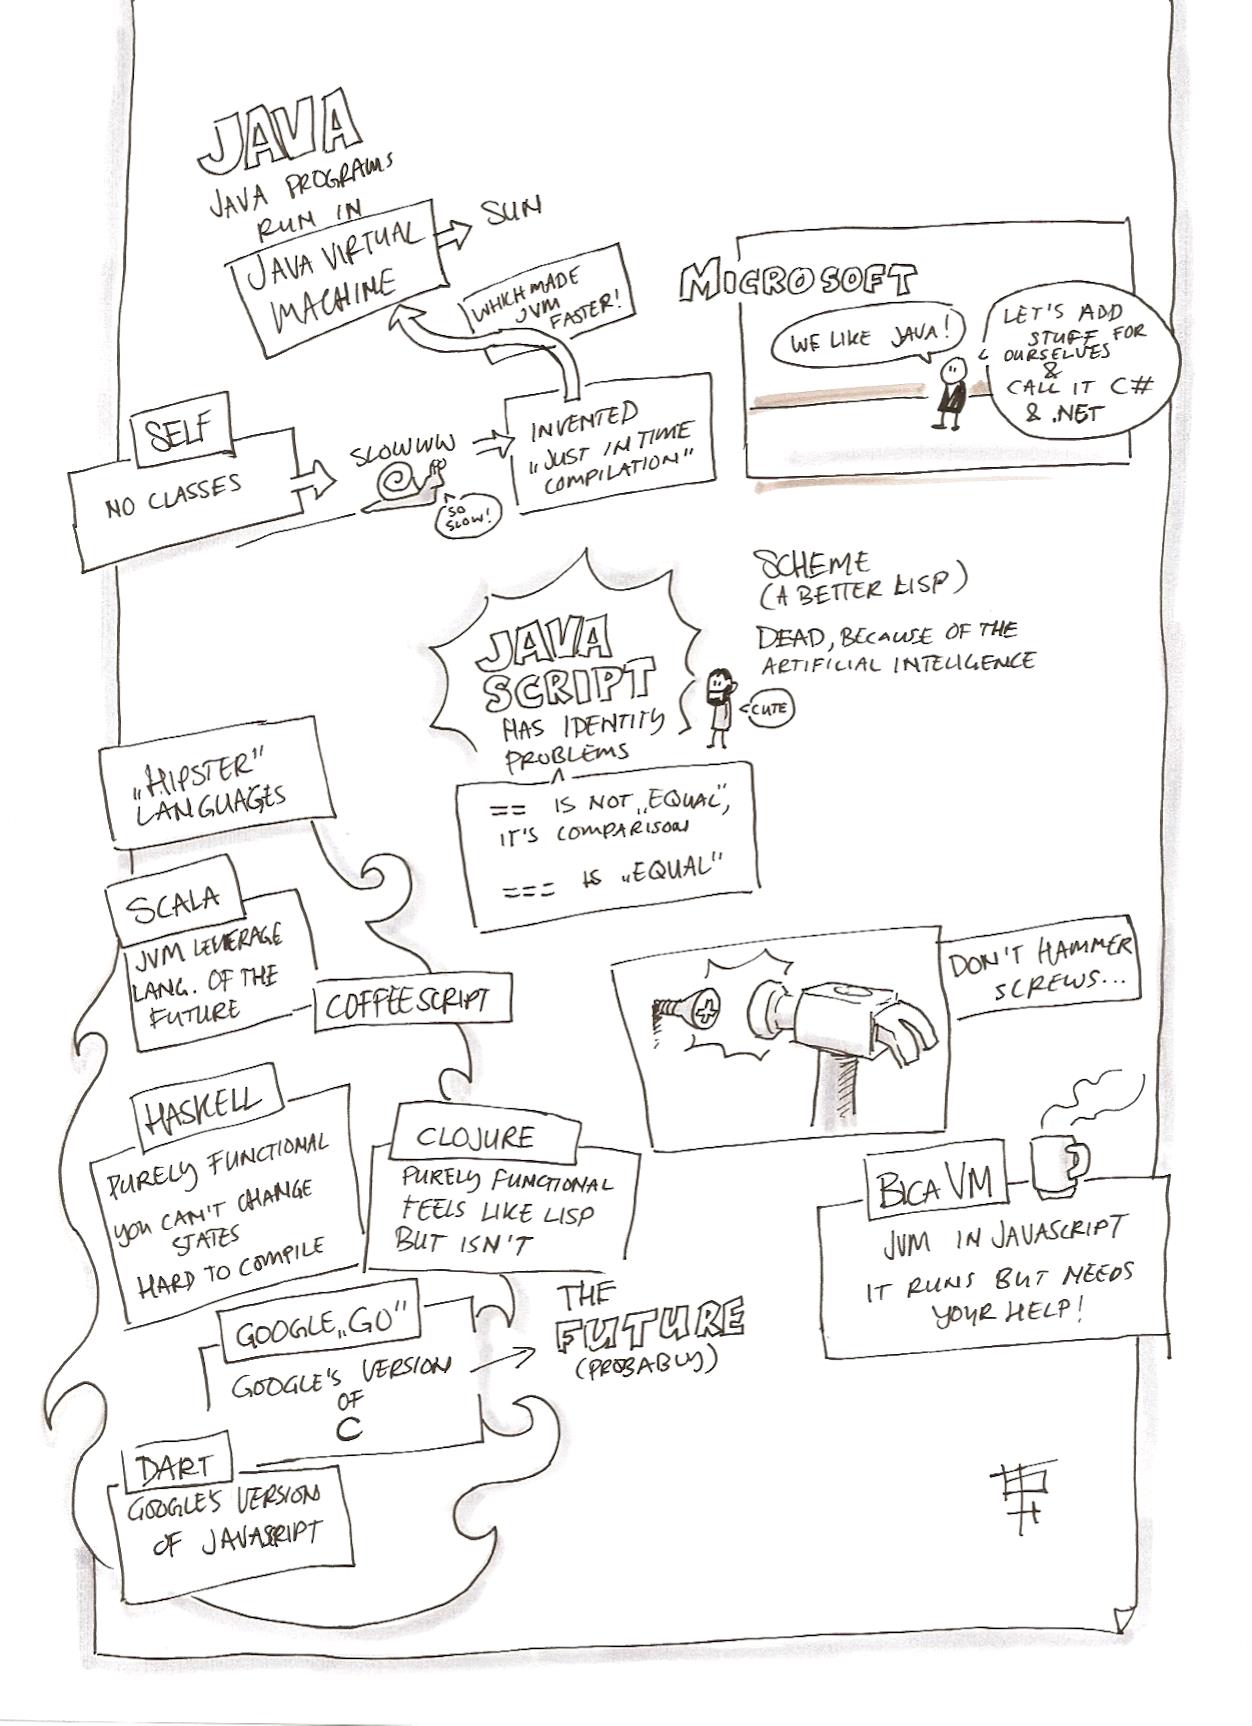 JAVA
JAVA PROGRAMS
RUN IN
JAVA VIRTUAL
MACHINE
SUN
WHICH MADE
JVM
FASTER!
MICROSOFT
WE LIKE JAVA!
LET'S ADD
STUFF FOR
OURSELVES
&
CALL IT C#
& .NET
SELF
NO CLASSES
SLOWWW
SO
SLOW!
INVENTED
„JUST IN TIME
COMPILATION"
SCHEME
(A BETTER LISP)
DEAD, BECAUSE OF THE
ARTIFICIAL INTELIGENCE
CUTE
JAVA
SCRIPT
HAS IDENTITY
PROBLEMS
== IS NOT „EQUAL",
IT'S COMPARISON
=== IS „EQUAL"
„HIPSTER"
LANGUAGES
SCALA
JVM LEVERAGE
LANG. OF THE
FUTURE
COFFEESCRIPT
DON'T HAMMER
SCREWS...
HASKELL
PURELY FUNCTIONAL
YOU CAN'T CHANGE
STATES
HARD TO COMPILE
CLOJURE
PURELY FUNCTIONAL
FEELS LIKE LISP
BUT ISN'T
BICA VM
JVM IN JAVASCRIPT
IT RUNS BUT NEEDS
YOUR HELP!
GOOGLE „GO"
GOOGLE'S VERSION
OF
C
THE
FUTURE
(PROBABLY)
DART
GOOGLE'S VERSION
OF JAVASRIPT